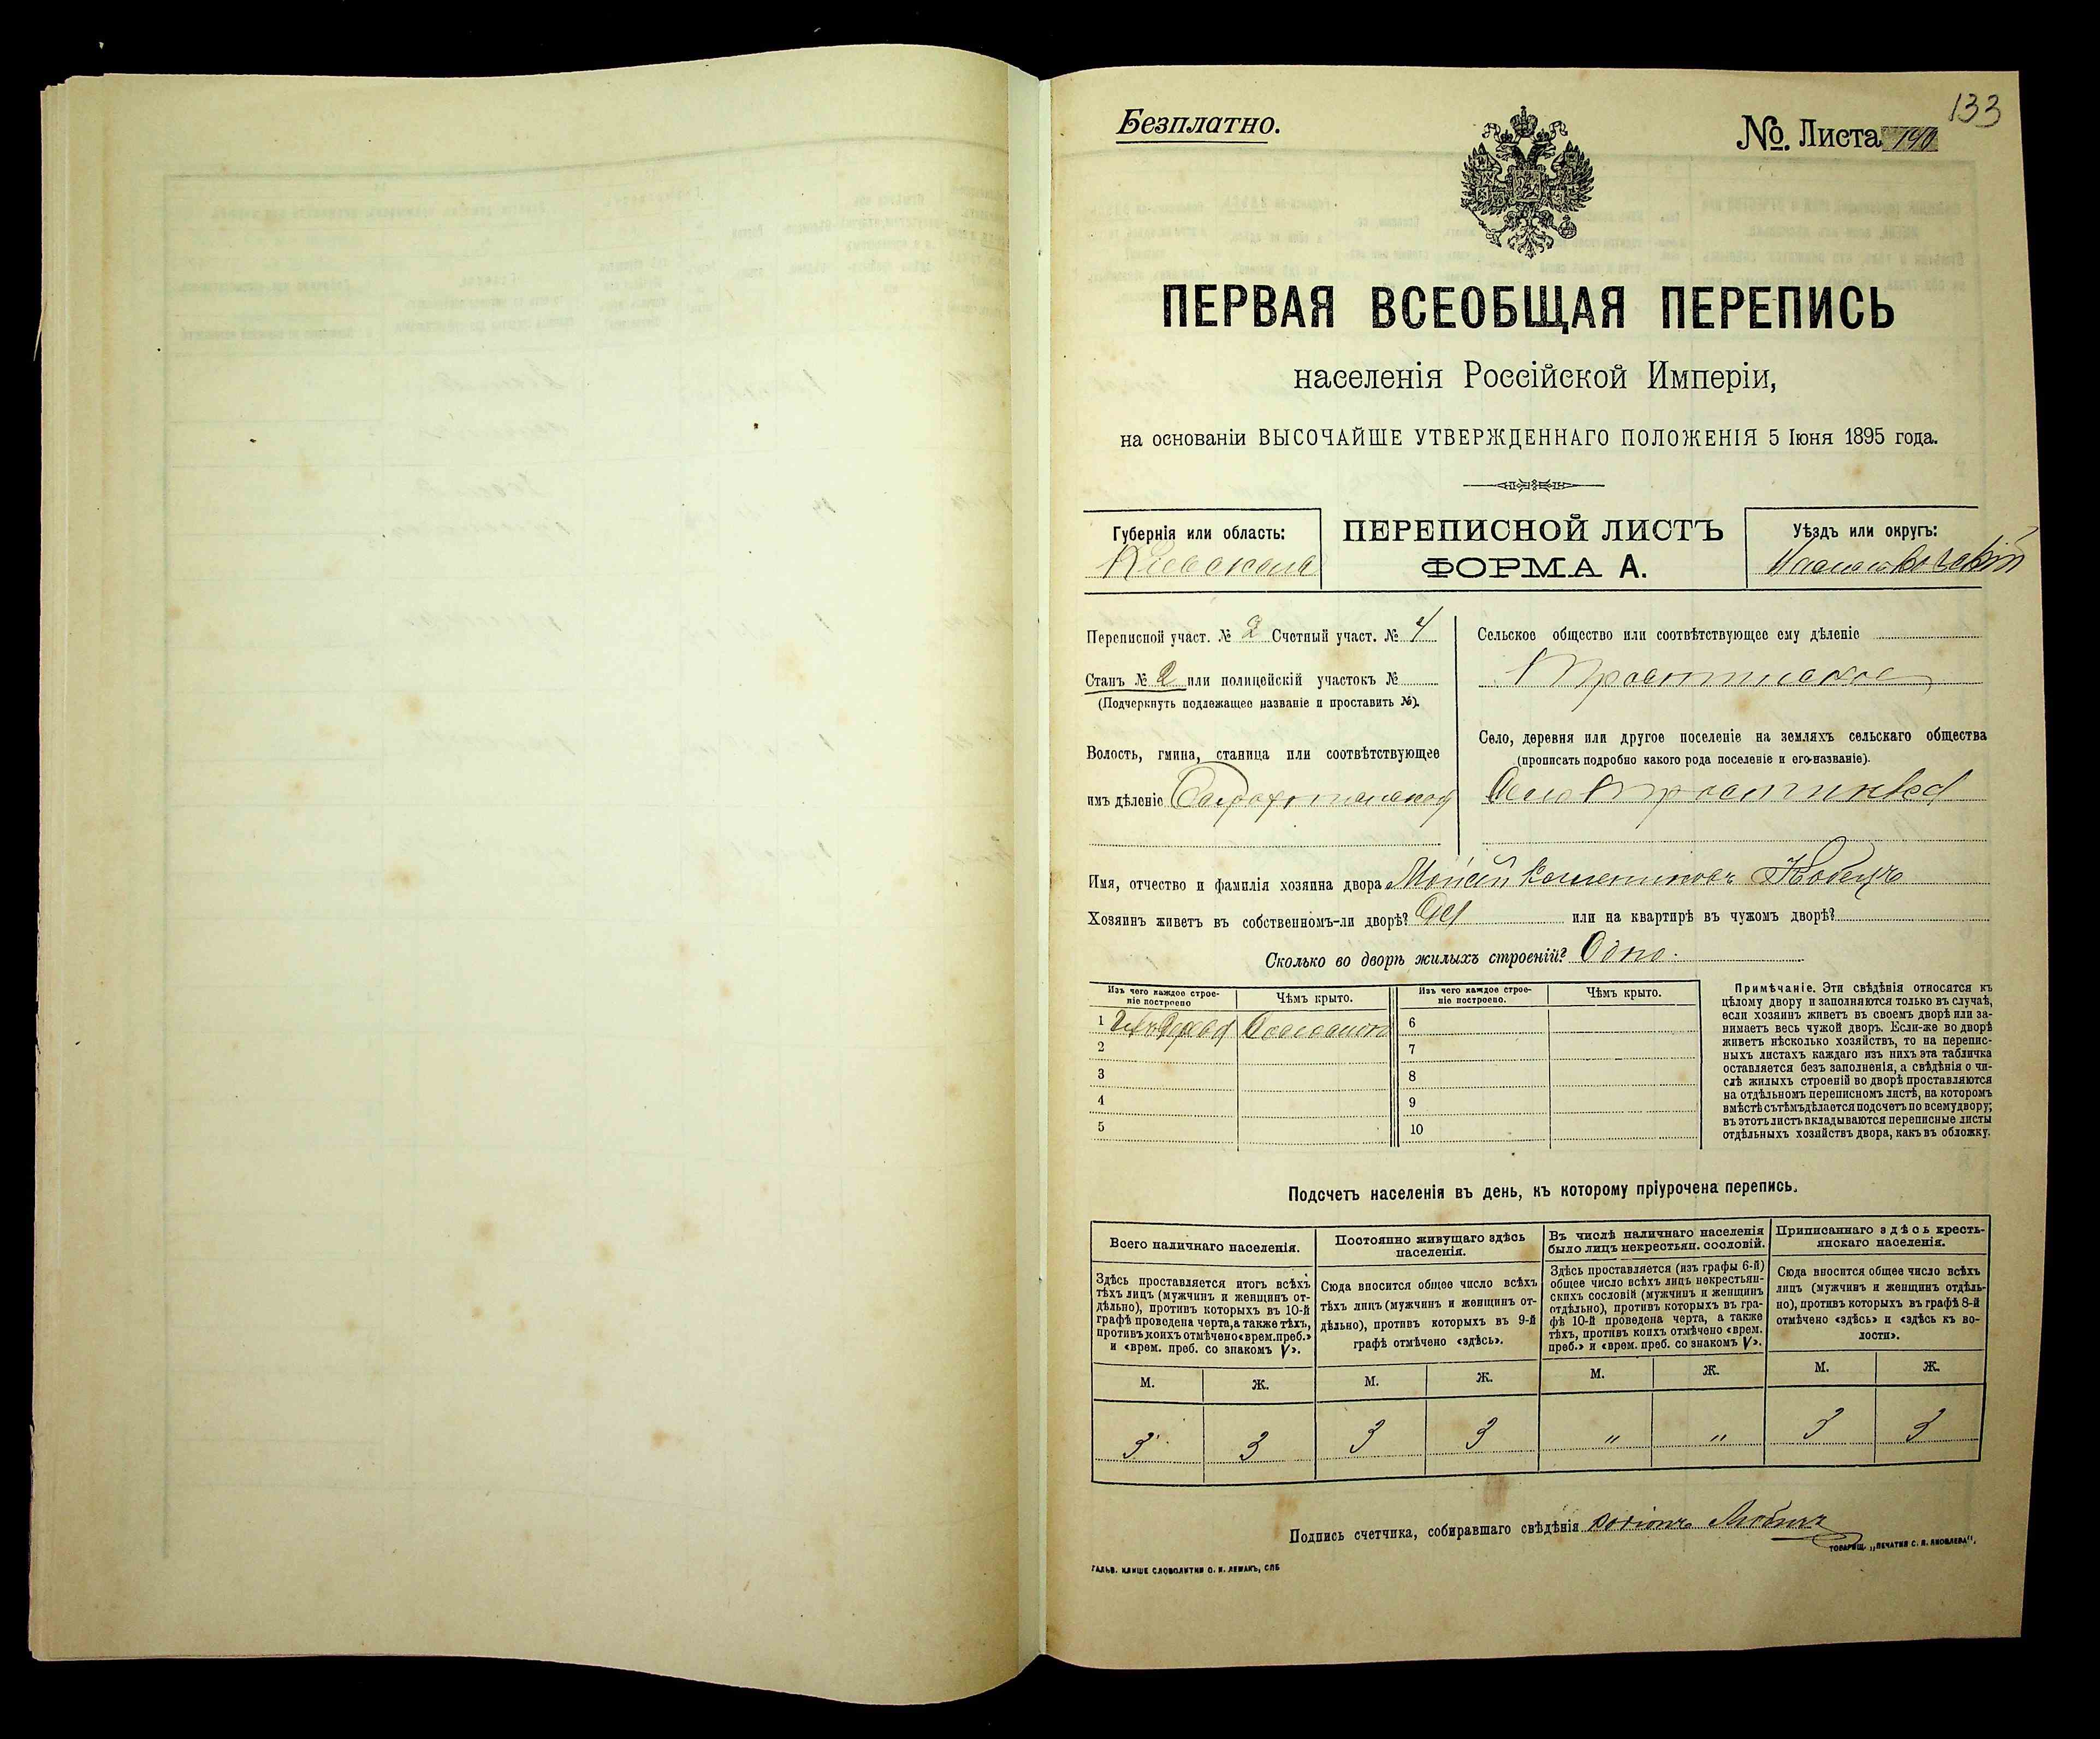 133
Безплатно.
№. Листа 190
ПЕРВАЯ ВСЕОБЩАЯ ПЕРЕПИСЬ
населенія Россійской Имперіи,
на основаніи ВЫСОЧАЙШЕ УТВЕРЖДЕННАГО ПОЛОЖЕНІЯ 5 Іюня 1895 года.
Губернія или область:
Кіевская
ПЕРЕПИСНОЙ ЛИСТЪ
ФОРМА А.
Уѣздъ или округъ:
Переписной участ. № 2 Счетный участ. № 4
Станъ № 2 или полицейскій участокъ №
(Подчеркнуть подлежащее названіе и проставить №).
Волость, гмина, станица или соотвѣтствующее
имъ дѣленіе
Сельское общество или соотвѣтствующее ему дѣленіе
Село, деревня или другое поселеніе на земляхъ сельскаго общества
(прописать подробно какого рода поселеніе и его названіе).
Село
Имя, отчество и фамилія хозяина двора Мойсей Кобецъ
Хозяинъ живетъ въ собственномъ-ли дворѣ? Да или на квартирѣ въ чужомъ дворѣ?
Сколько во дворѣ жилыхъ строеній? Одно.
Изъ чего каждое строе-
ніе построено
Чѣмъ крыто.
Изъ чего каждое строе-
ніе построено.
Чѣмъ крыто.
1 Изъ дерева Соломою
2
3
4
5
6
7
8
9
10
Примѣчаніе. Эти свѣдѣнія относятся къ
цѣлому двору и заполняются только въ случаѣ,
если хозяинъ живетъ въ своемъ дворѣ или за-
нимаетъ весь чужой дворъ. Если-же во дворѣ
живетъ нѣсколько хозяйствъ, то на перепис-
ныхъ листахъ каждаго изъ нихъ эта табличка
оставляется безъ заполненія, а свѣдѣнія о чи-
слѣ жилыхъ строеній во дворѣ проставляются
на отдѣльномъ переписномъ листѣ, на которомъ
вмѣстѣ съ тѣмъ дѣлается подсчетъ по всему двору;
въ этотъ листъ вкладываются переписные листы
отдѣльныхъ хозяйствъ двора, какъ въ обложку.
Подсчетъ населенія въ день, къ которому пріурочена перепись.
Всего наличнаго населенія.
Здѣсь проставляется итогъ всѣхъ
тѣхъ лицъ (мужчинъ и женщинъ от-
дѣльно), противъ которыхъ въ 10-й
графѣ проведена черта, а также тѣхъ,
противъ коихъ отмѣчено «врем. преб.»
и «врем. преб. со знакомъ V».
Постоянно живущаго здѣсь
населенія.
Сюда вносится общее число всѣхъ
тѣхъ лицъ (мужчинъ и женщинъ от-
дѣльно), противъ которыхъ въ 9-й
графѣ отмѣчено «здѣсь».
Въ числѣ наличнаго населенія
было лицъ некрестьян. сословій.
Здѣсь проставляется (изъ графы 6-й)
общее число всѣхъ лицъ некрестьян-
скихъ сословій (мужчинъ и женщинъ
отдѣльно), противъ которыхъ въ гра-
фѣ 10-й проведена черта, а также
тѣхъ, противъ коихъ отмѣчено «врем.
преб.» и «врем. преб. со знакомъ V».
Приписаннаго здѣсь кресть-
янскаго населенія.
Сюда вносится общее число всѣхъ
лицъ (мужчинъ и женщинъ отдѣль-
но), противъ которыхъ въ графѣ 8-й
отмѣчено «здѣсь» и «здѣсь къ во-
лости».
М. Ж. М. Ж. М. Ж. М. Ж.
3 3 3 3 " " 3 3
Подпись счетчика, собиравшаго свѣдѣнія
ТОВАРИЩ. „ПЕЧАТНЯ С. П. ЯКОВЛЕВА“,
ГАЛЬВ. КЛИШЕ СЛОВОЛИТНИ О. И. ЛЕМАНЪ, СПБ